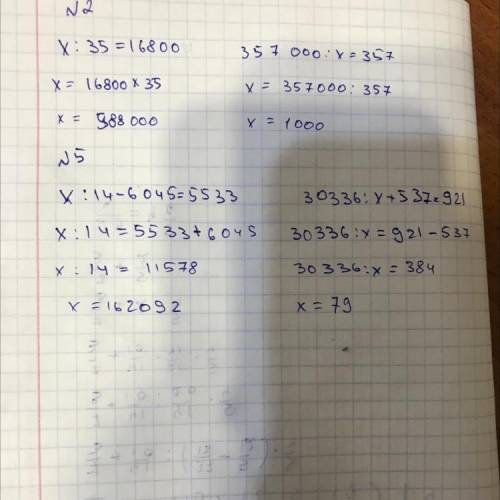 №2
x : 35 = 16800
x = 16800 × 35
x = 588 000
357 000 : x = 357
x = 357000 : 357
x = 1000
№5
x : 14 - 6045 = 5533
x : 14 = 5533 + 6045
x : 14 = 11578
x = 162092
30336 : x + 537 = 921
30336 : x = 921 - 537
30336 : x = 384
x = 79